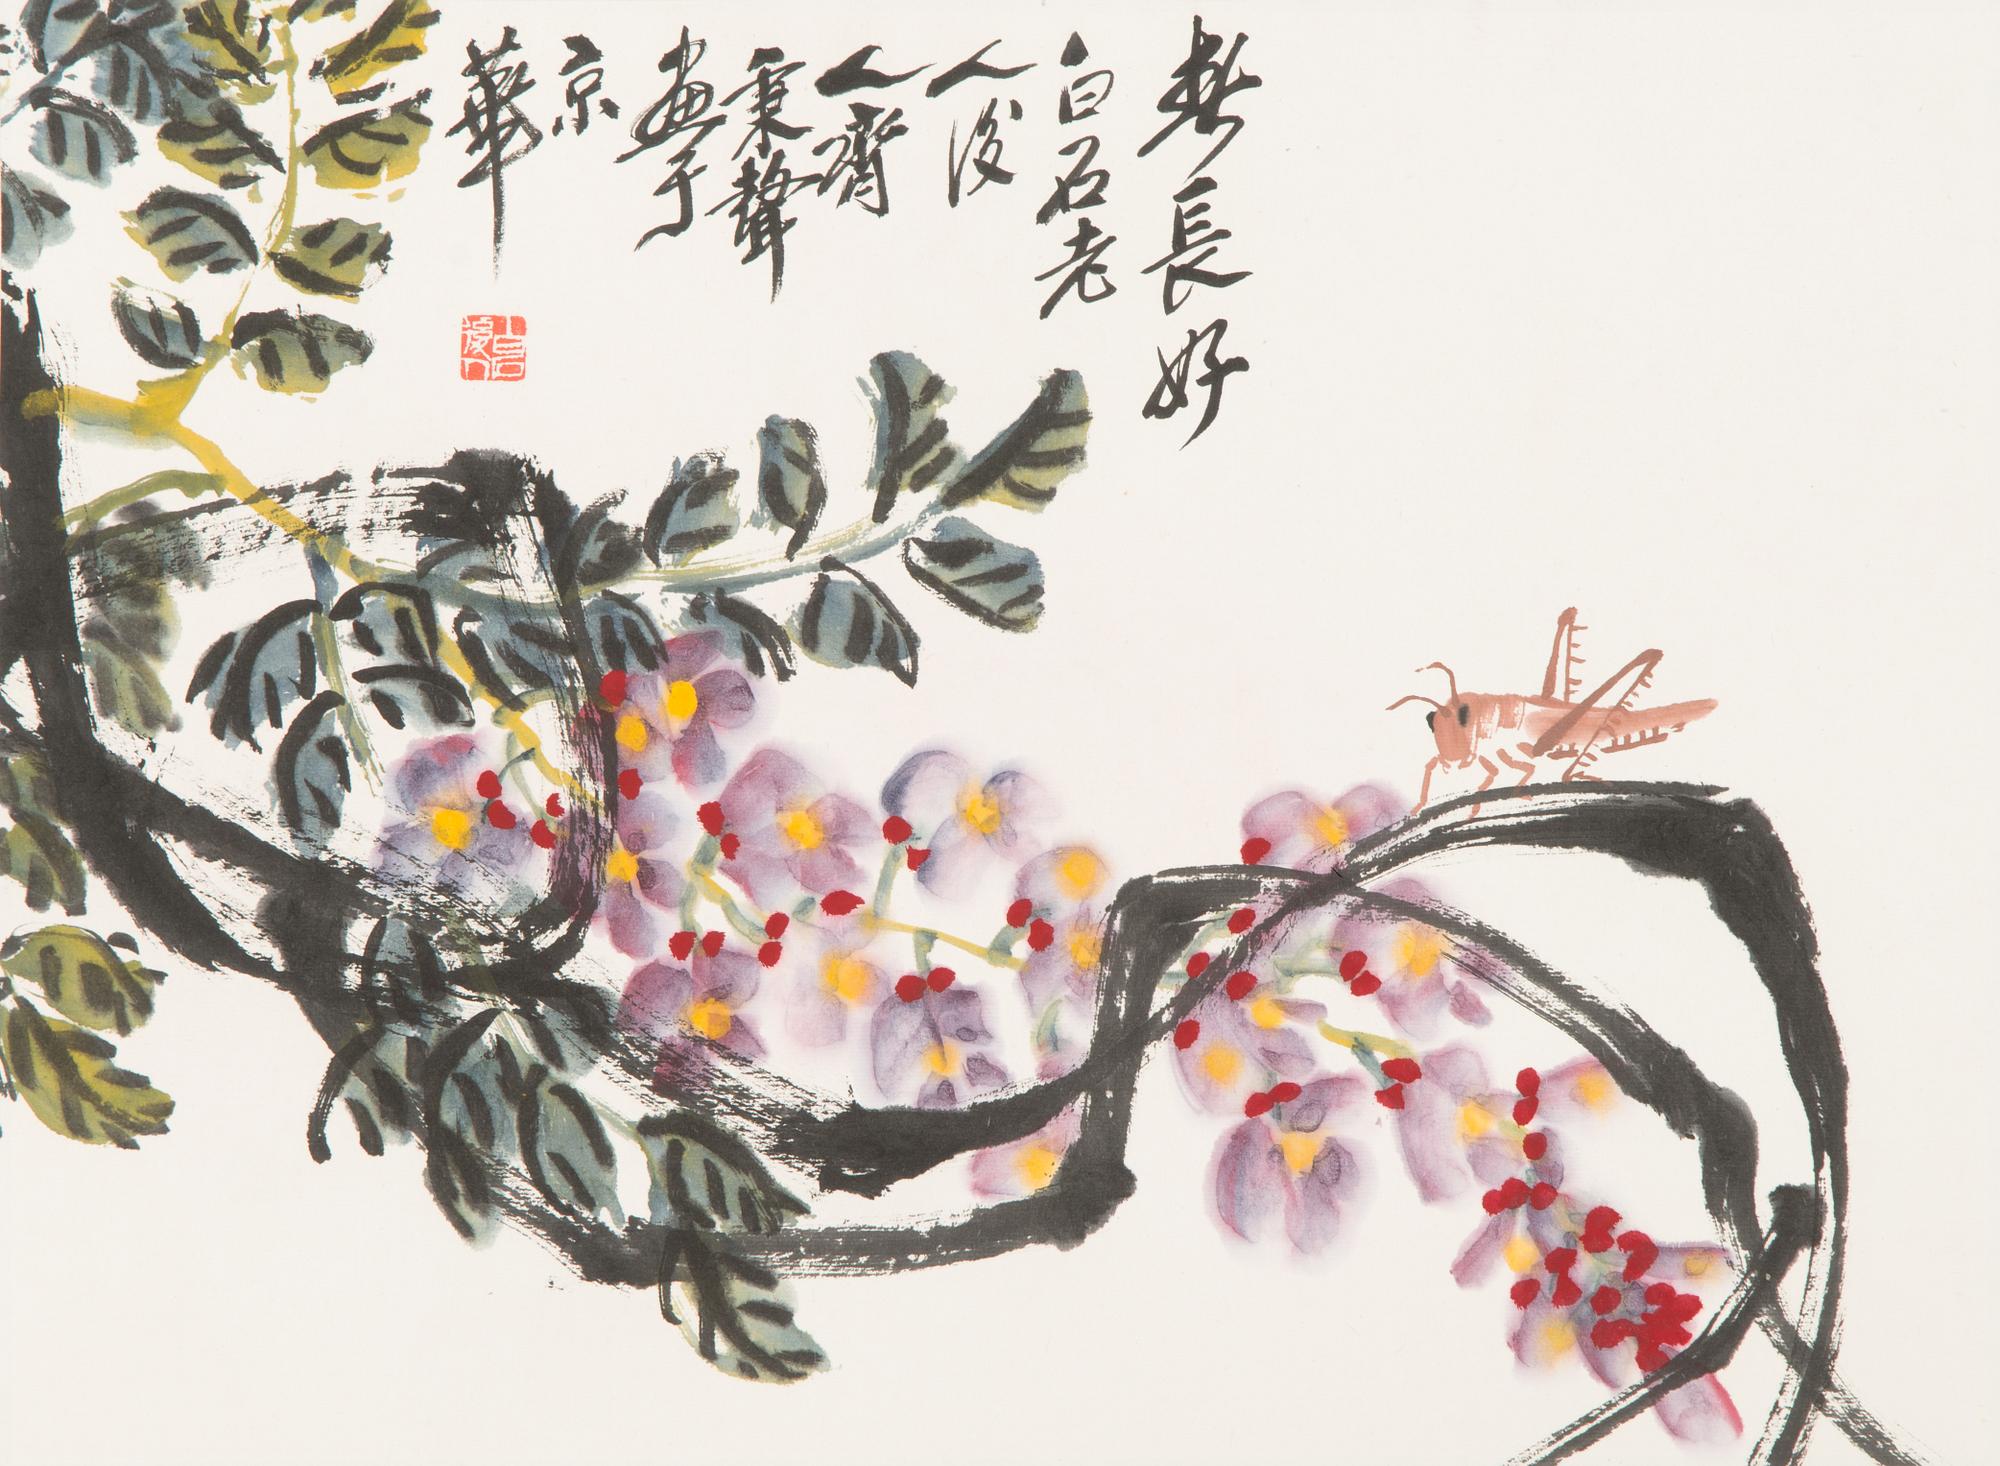 春長好
白石老
人後
人齊
秉聲
畫于
京
華
白石
後人